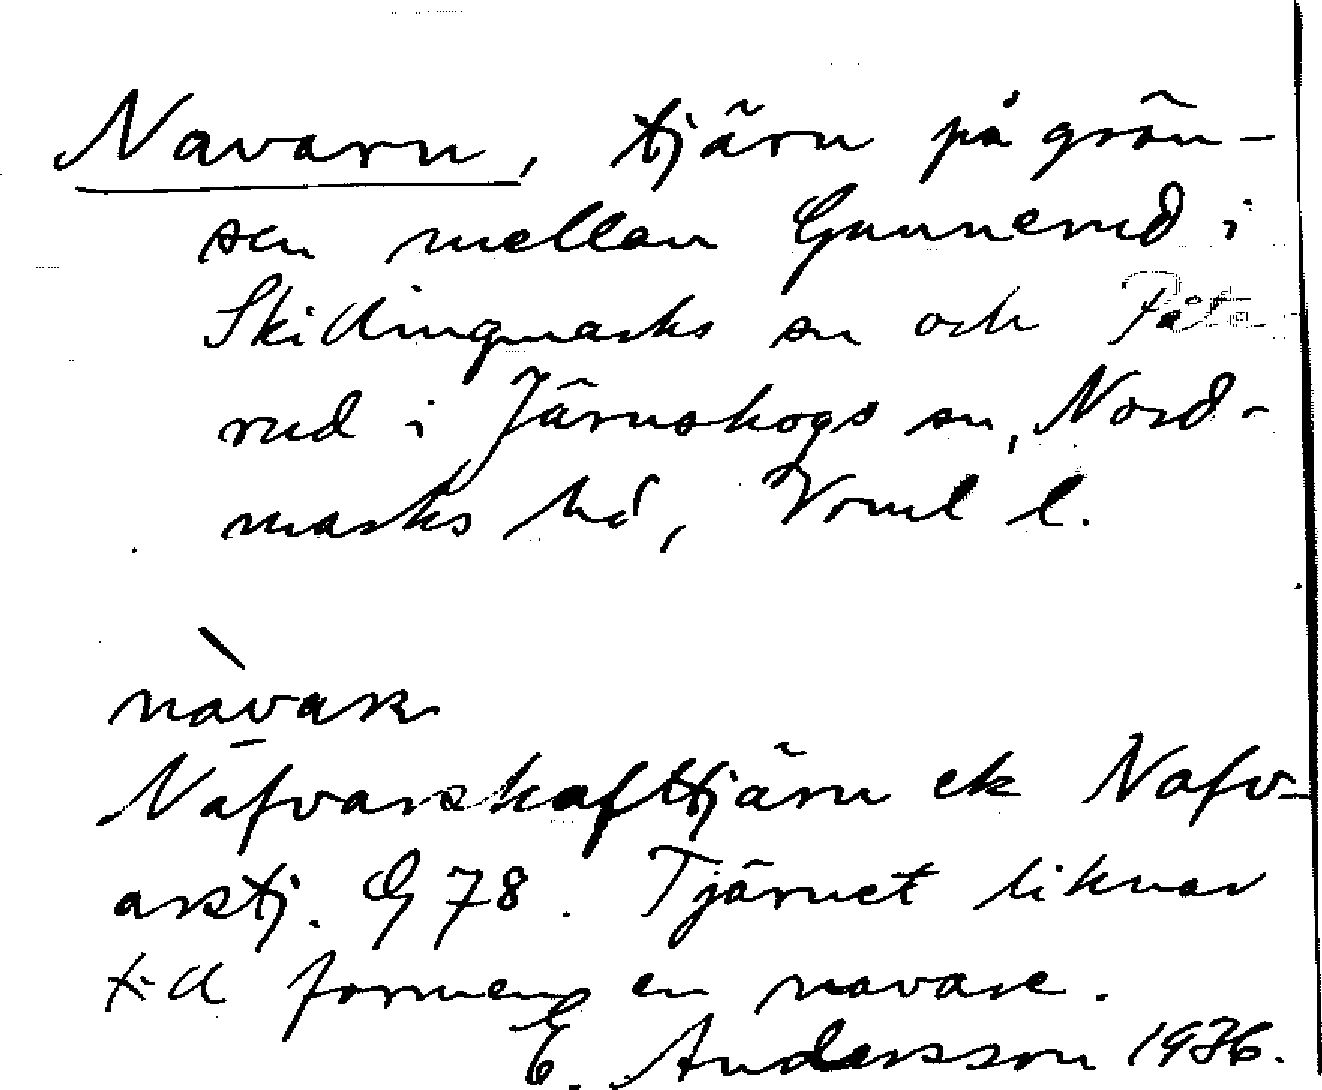 Navarn, tjärn på grän-
sen mellan Gunnerud i
Skillingmarks sn och Fåta-
rud i Järnskogs sn, Nord-
marks hd, Vrml l.
nàvarn
Nafvarskafttjärn ek Nafv-
arstj. G 78. Tjärnet liknar
till formen en navare.
E. Andersson 1936.